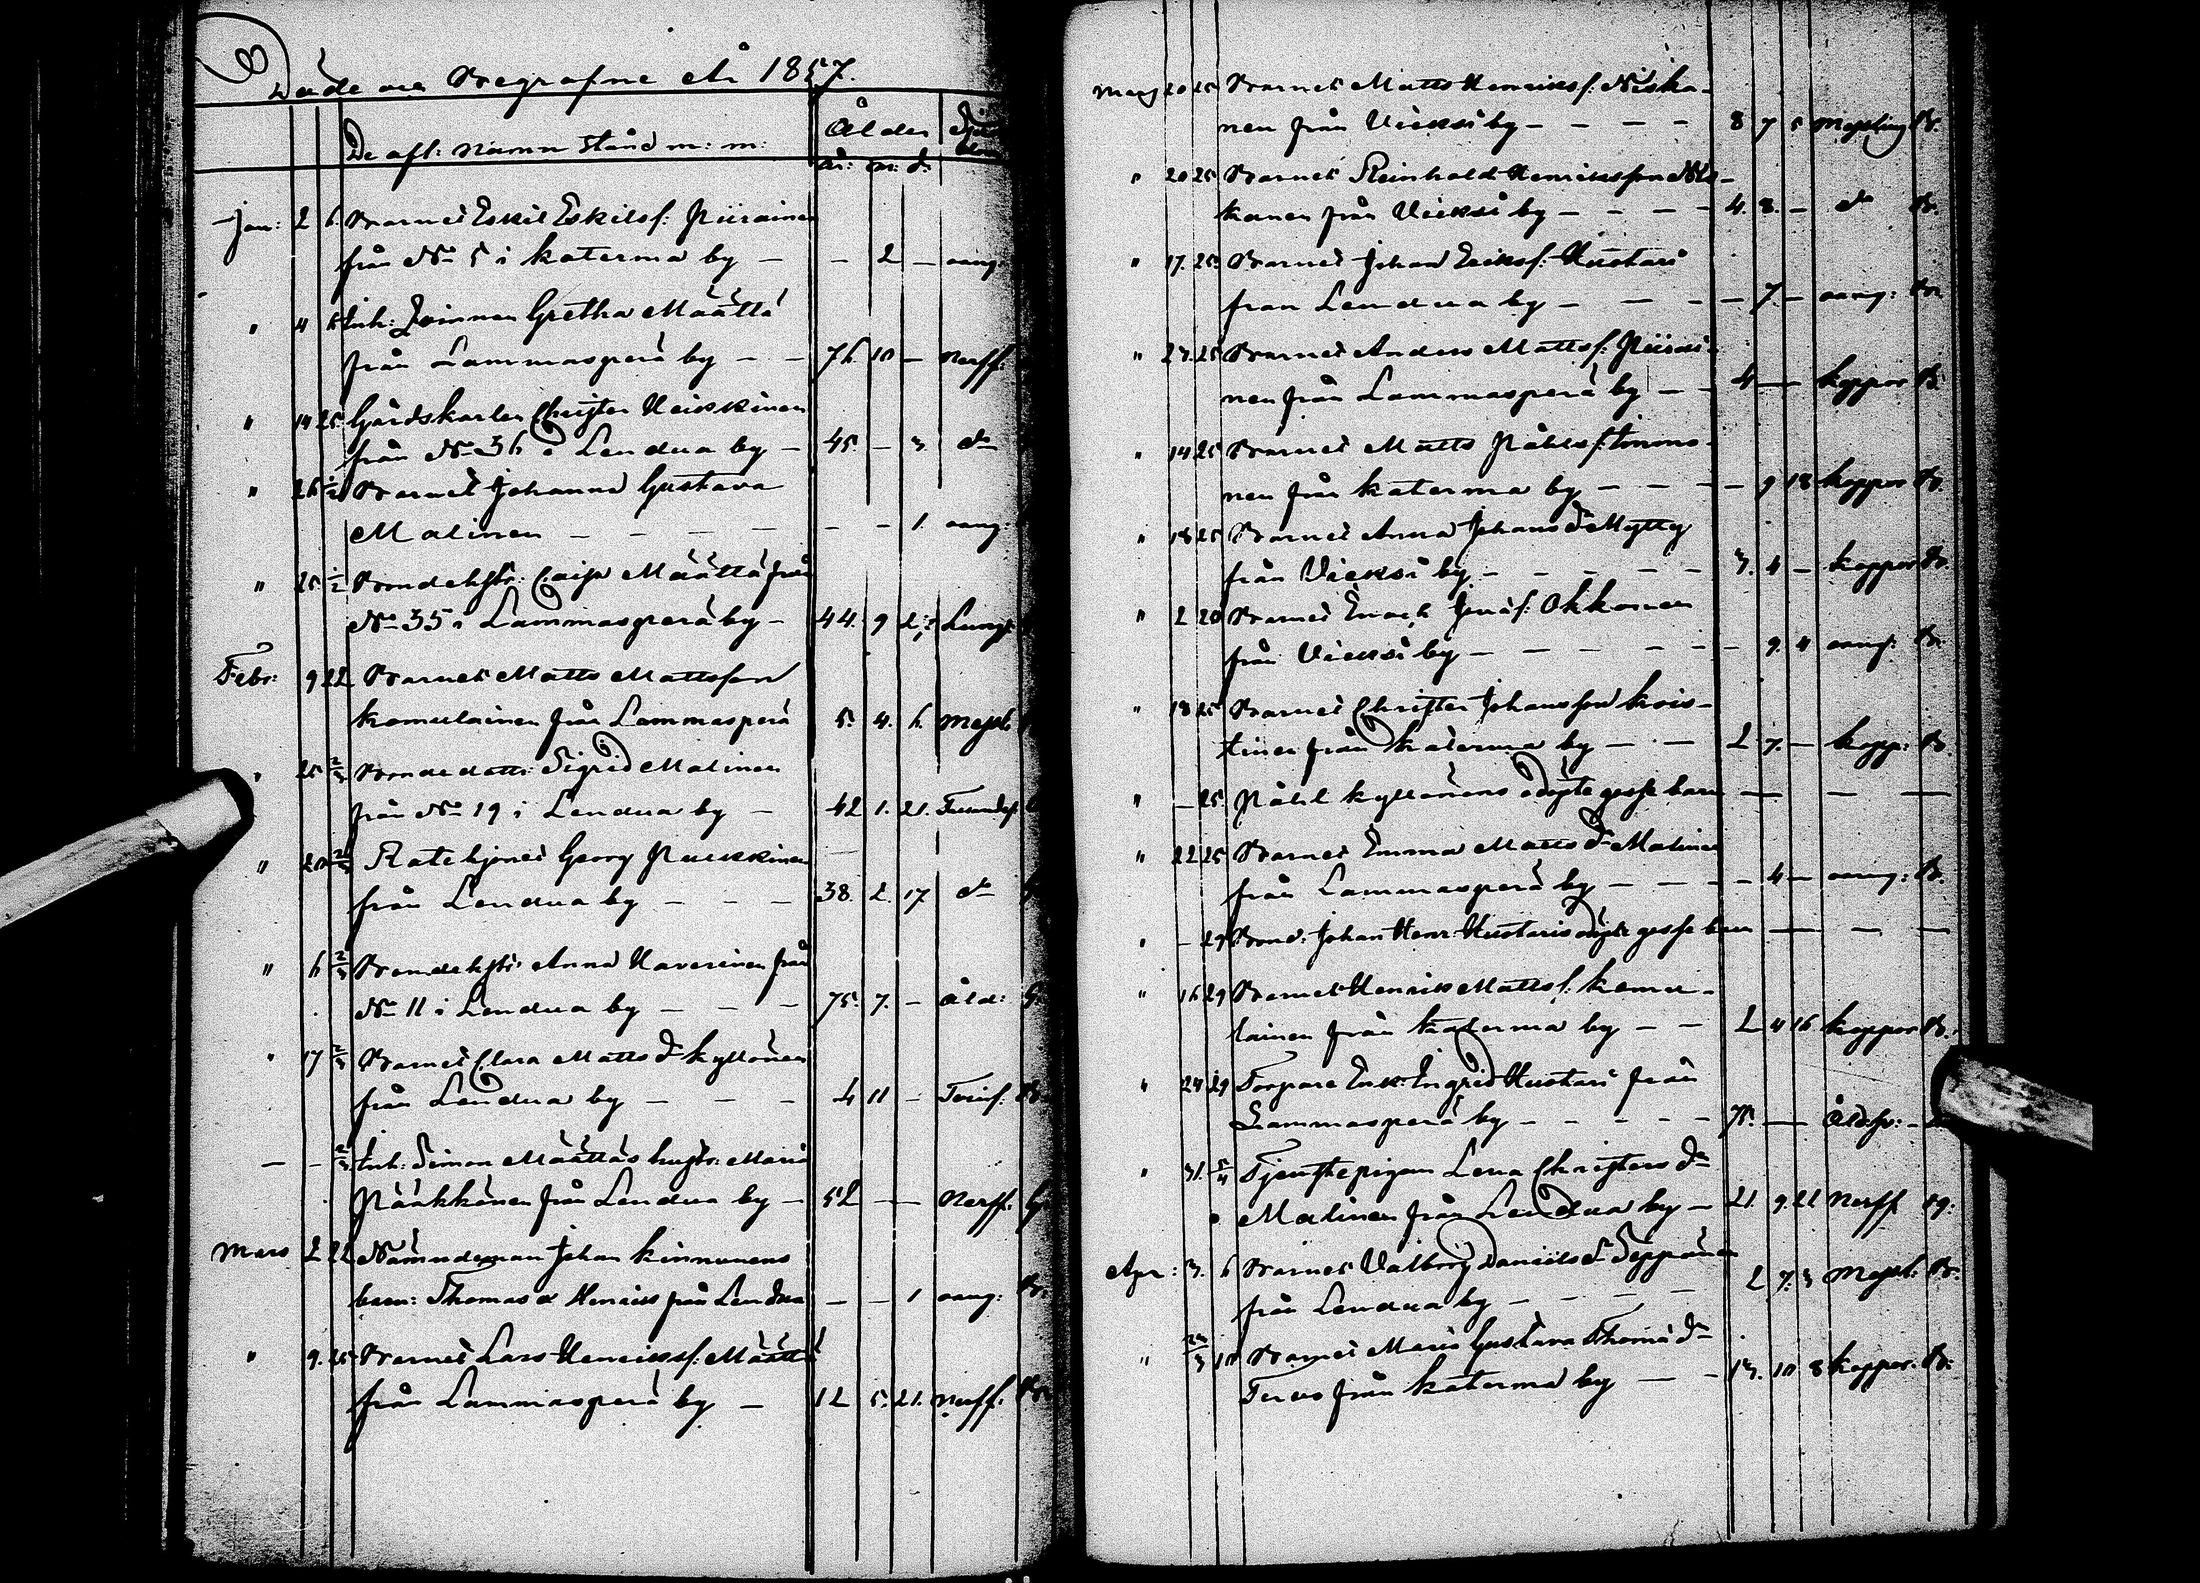 Döde och Begrafne År 1857.
De afl: Namn stånd m: m: Ålder
år: m: d:
Jan: 2 6. Barnet Eskil Eskilsf: Piirainen
från No 5 i Katerma by — — 2 — aang:
" 4 6 Inh: Enkan Gretha Määttä
från Lammasperä by — — 76 10 — Nerff:
" 14 25 Gårdskarlen Christer Heikkinen
från No 36 i Lendua by — 45. — 3. do
" 26 1/2 Barnet Johanna Gustava
Malinen — — — — — 1. aang:
" 25 1/2 Bondehstr: Caisa Määttä från
No 35 i Lammasperä by — 44. 9 Lungs
Febr: 9 22 Barnet Matts Mattsson
Komulainen från Lammasperä 5. 4. 6. Messl:
" 25 2/3 Bondedottr: Sigrid Malinen
från No 19 i Lendua by — 42 1. 21.
" 20 2/3 Rotehjonet Georg Pulkkinen
från Lendua by — — — 38. 2. 17 do
" 6 2/3 Bondehstr: Anna Haverinen från
No 11 i Lendua by — — — 75. 7. — Åld: G.
" 17 2/3 Barnet Clara Matts dr Kyllönen
från Lendua by — — — 4 11 — B.
— — 2/3 Inh: Simon Määttäs hustr: Maria
Pääkkönen från Lendua by — 52 — — Nerff. G
Mars 2 22 Nämndeman Johan Kinnunens
barn: Thomas o Henrik från Lendua — — 1 aang: B.
" 9. 25 Barnet Lars Henrikss: Määttä
från Lammasperä by — 12 5. 21. Nerff. B.
Mars 20 25 Barnet Matts Henrikss: Niska-
nen från Vieksi by — — — — 8 7 5 Messling B.
" 20 25 Barnet Reinhold Henriksson Nis-
kanen från Vieksi by — — — — 4. 8. — do B.
" 17. 25. Barnet Johan Erikss: Hustari
från Lendua by — — — — 7. — aang: B.
" 23. 25 Barnet Anders Mattss: Piirai-
nen från Lammasperä by — — 4 — — koppor B.
" 14 25 Barnet Matts Påhlss: Timmo-
nen från Katerma by — — — — 9 18 koppor B.
" 18 25 Barnet Anna Johans dr Mylly
från Vieksi by — — — — — 3. 4 — koppor B.
" 2 20 Barnet Enoch Jonæs: Okkonen
från Vieksi by — — — — — — 9. 4 aang: B.
" 18 25 Barnet Christer Johansson Kois-
tinen från Katerma by — — — 2 7. — kopp: B.
" — 25 Påhl Kyllönens odöpte gosse barn — — —
" 22 25 Barnet Emma Matts dr Malinen
från Lammasperä by — — — — 4 — aang: B.
" — 29 Bond: Johan Henr: Hustaris odöpte gosse barn — — —
" 16 29 Barnet Henrik Mattss: Komu-
lainen från Katerma by — — 2 4 16 koppor B.
" 24 29 Torpare Enk: Ingrid Hustari från
Lammasperä by — — — — — 75. — — Ålds: —
" 31. 5/4 Tjenstepigan Lena Christers dr
Malinen från Lendua by — 21. 9. 21 Nerff
Apr: 3. 6 Barnet Valborg Daniels dr Seppänen
från Lendua by — — — — — 2 7. 3 Messl: B.
" 29/3 10 Barnet Maria Gustava Thomæ dr
Tervo från Katerma by — — 13. 10 8 koppor. B.